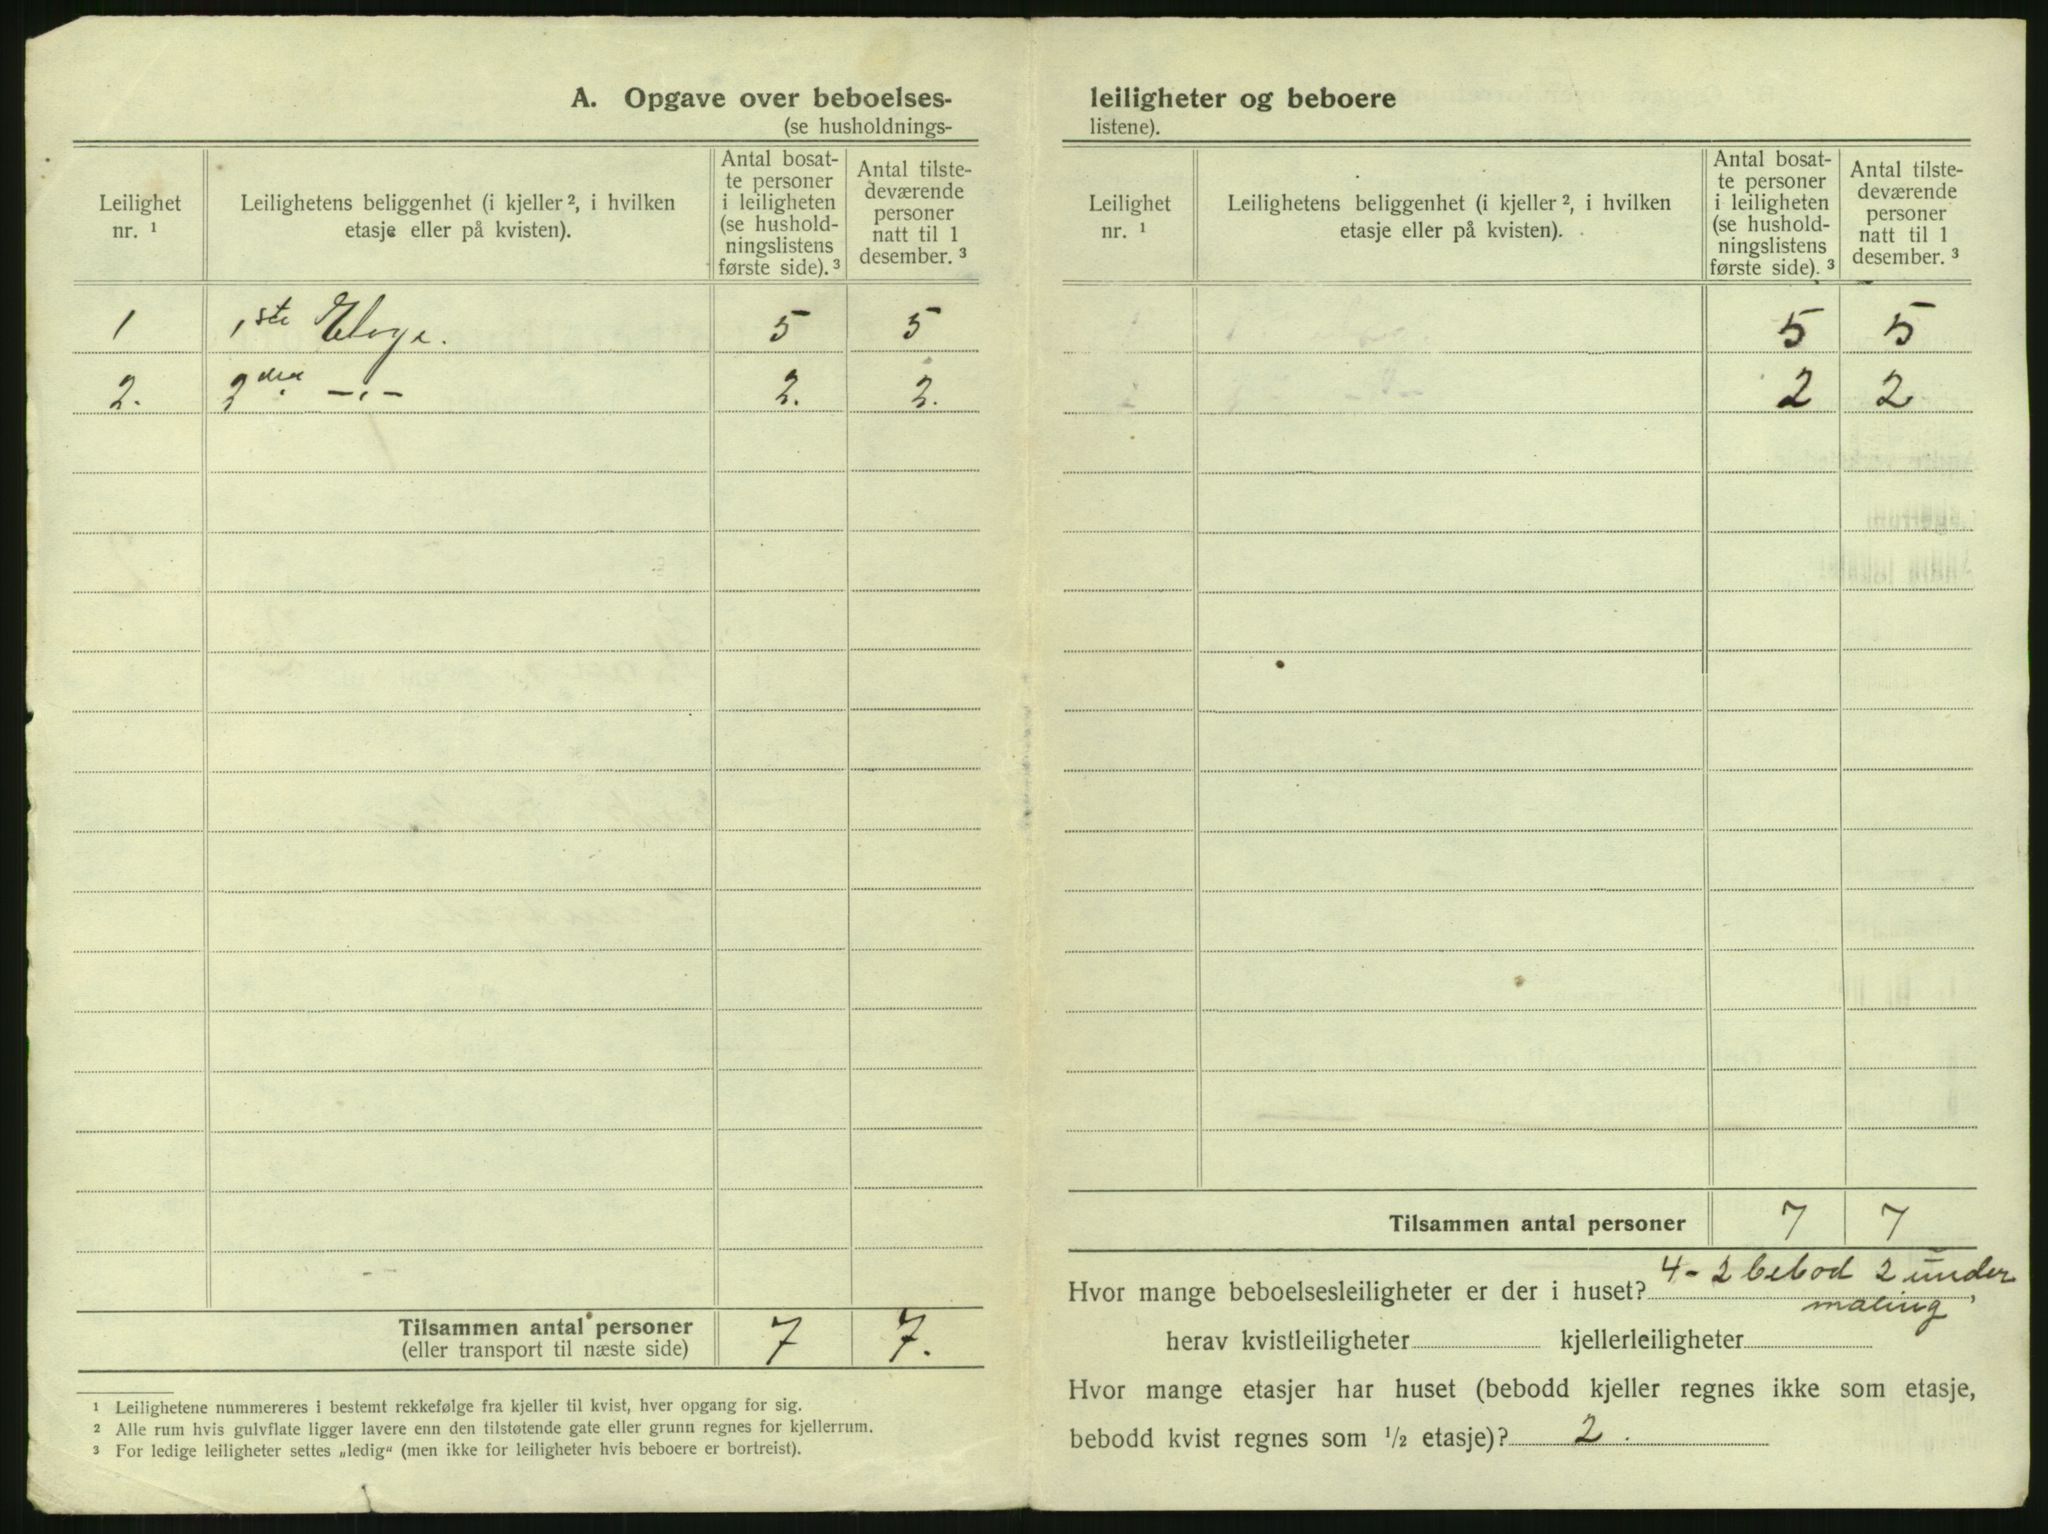 A. Opgave over beboelses-
(se husholdnings-
Leilighet
nr. ¹
Leilighetens beliggenhet (i kjeller ², i hvilken
etasje eller på kvisten).
Antal bosat-
te personer
i leiligheten
(se hushold-
ningslistens
første side). ³
Antal tilste-
deværende
personer
natt til 1
desember. ³
1 1ste 5 5
2. 2den -.- 2. 2.
Tilsammen antal personer 7 7.
(eller transport til næste side)
¹ Leilighetene nummereres i bestemt rekkefølge fra kjeller til kvist, hver opgang for sig.
² Alle rum hvis gulvflate ligger lavere enn den tilstøtende gate eller grunn regnes for kjellerrum.
³ For ledige leiligheter settes „ledig“ (men ikke for leiligheter hvis beboere er bortreist).
leiligheter og beboere
listene).
Leilighet
nr. ¹
Leilighetens beliggenhet (i kjeller ², i hvilken
etasje eller på kvisten).
Antal bosat-
te personer
i leiligheten
(se hushold-
ningslistens
første side). ³
Antal tilste-
deværende
personer
natt til 1
desember. ³
5 5
2 2
Tilsammen antal personer 7 7
Hvor mange beboelsesleiligheter er der i huset? 4 - 2 bebod 2 under
maling,
herav kvistleiligheter kjellerleiligheter
Hvor mange etasjer har huset (bebodd kjeller regnes ikke som etasje,
bebodd kvist regnes som ½ etasje)? 2.